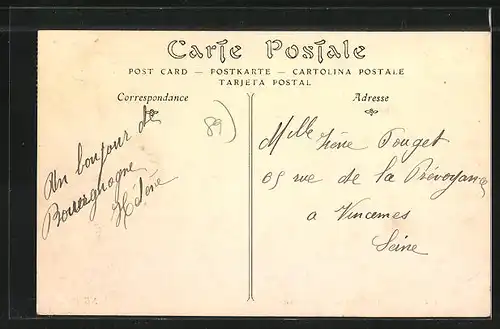 Carte Postale
POST CARD — POSTKARTE — CARTOLINA POSTALE
TARJETA POSTAL
Correspondance
Adresse
89)
Un bonjour de
Bourgnogne
Hélène
Mlle Irène Pouget
65 rue de la Prévoyance
a Vincennes
Seine